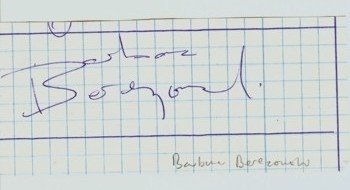 Barbara
Berezowski
Barbara Berezowski